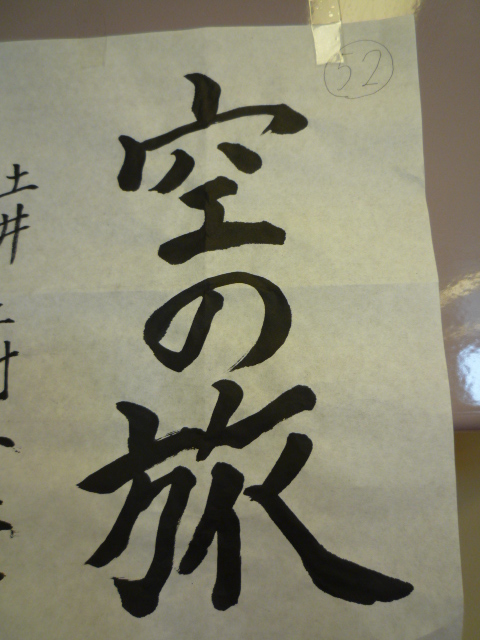 52
空の旅
土井